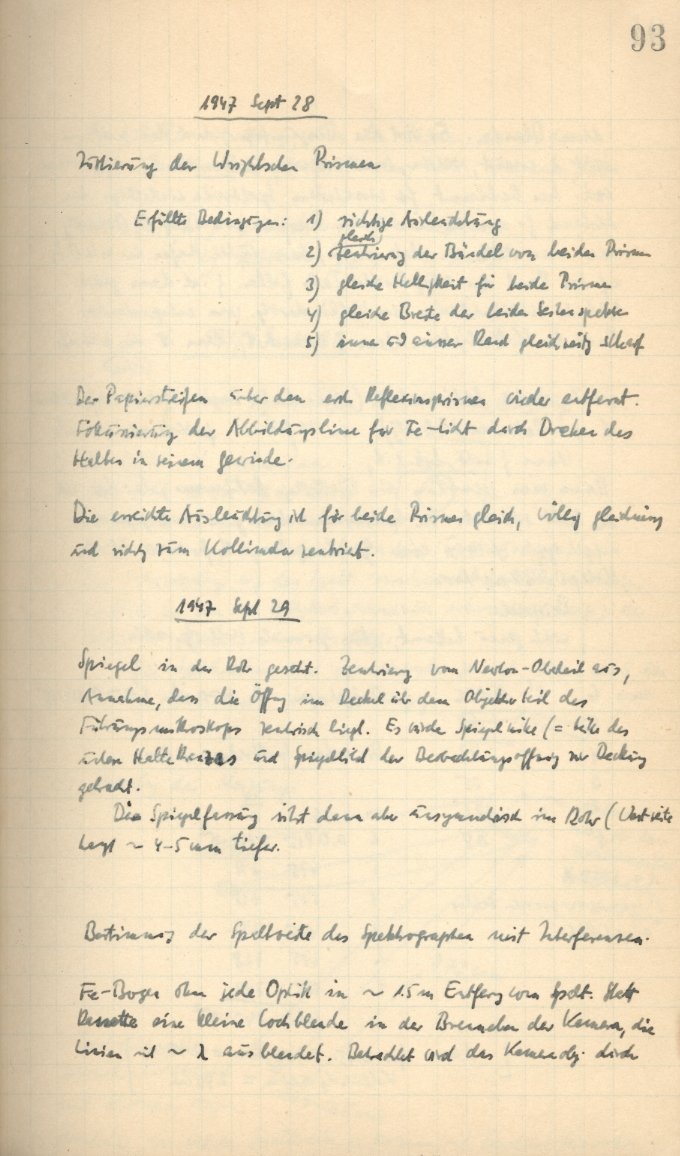 93
1947 Sept 28
Justierung der Wrightschen Prismen
Erfüllte Bedingungen: 1) richtige Ausleuchtung
gleiche
2) Zentrierung der Bündel von beiden Prismen
3) gleiche Helligkeit für beide Prismen
4) gleiche Breite der beiden Seitenspektren
5) innerer und äusserer Rand gleichzeitig scharf
Der Papierstreifen über dem Reflexionsprismen wieder entfernt.
Fokussierung der Abbildungslinse für Fe-Licht durch Drehen des
Halters in seinem Gewinde.
Die erreichte Ausleuchtung ist für beide Prismen gleich, völlig gleichmässig
und richtig zum Kollimator zentriert.
1947 Sept 29
Spiegel in das Rohr gesetzt. Zentrierung vom Newton-Okularteil aus,
Annahme, dass die Öffng im Deckel über dem Objektivteil des
Führungsmikroskops zentrisch liegt. Es wurde Spiegelmitte (= Mitte des
Haltekranzes und Spiegelbild der Beobachtungsöffnung zur Deckung
gebracht.
Die Spiegelfassung sitzt dann aber unsymmetrisch im Rohr (Westseite
liegt ~ 4-5 mm tiefer.
Bestimmung der Spaltweite des Spektrographen mit Interferenzen.
Fe-Bogen ohne jede Optik in ~ 1.5 m Entferng vom Spalt. Statt
Kassette eine kleine Lochblende in der Brennebene der Kamera, die
Linien mit ~ λ ausblendet. Betrachtet wird das Kameraobj. durch